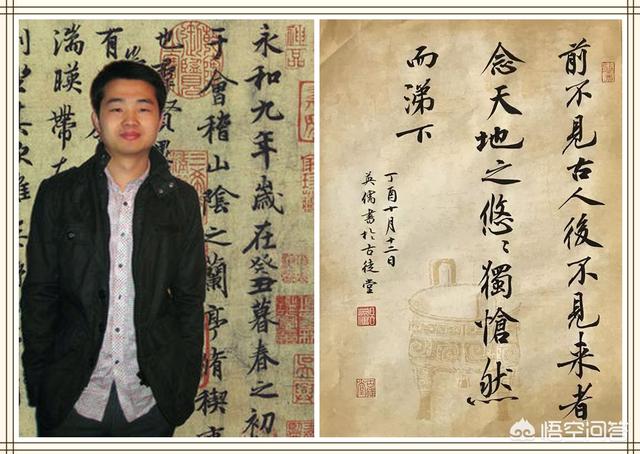 永和九年歲在癸丑暮春之初
于會稽山陰之蘭亭脩稧事
也羣賢
有
湍暎帶左
前不見古人後不見来者
念天地之悠〻獨愴然
而涕下
丁酉十月十二日
英儒書於古徒堂
悟空问答